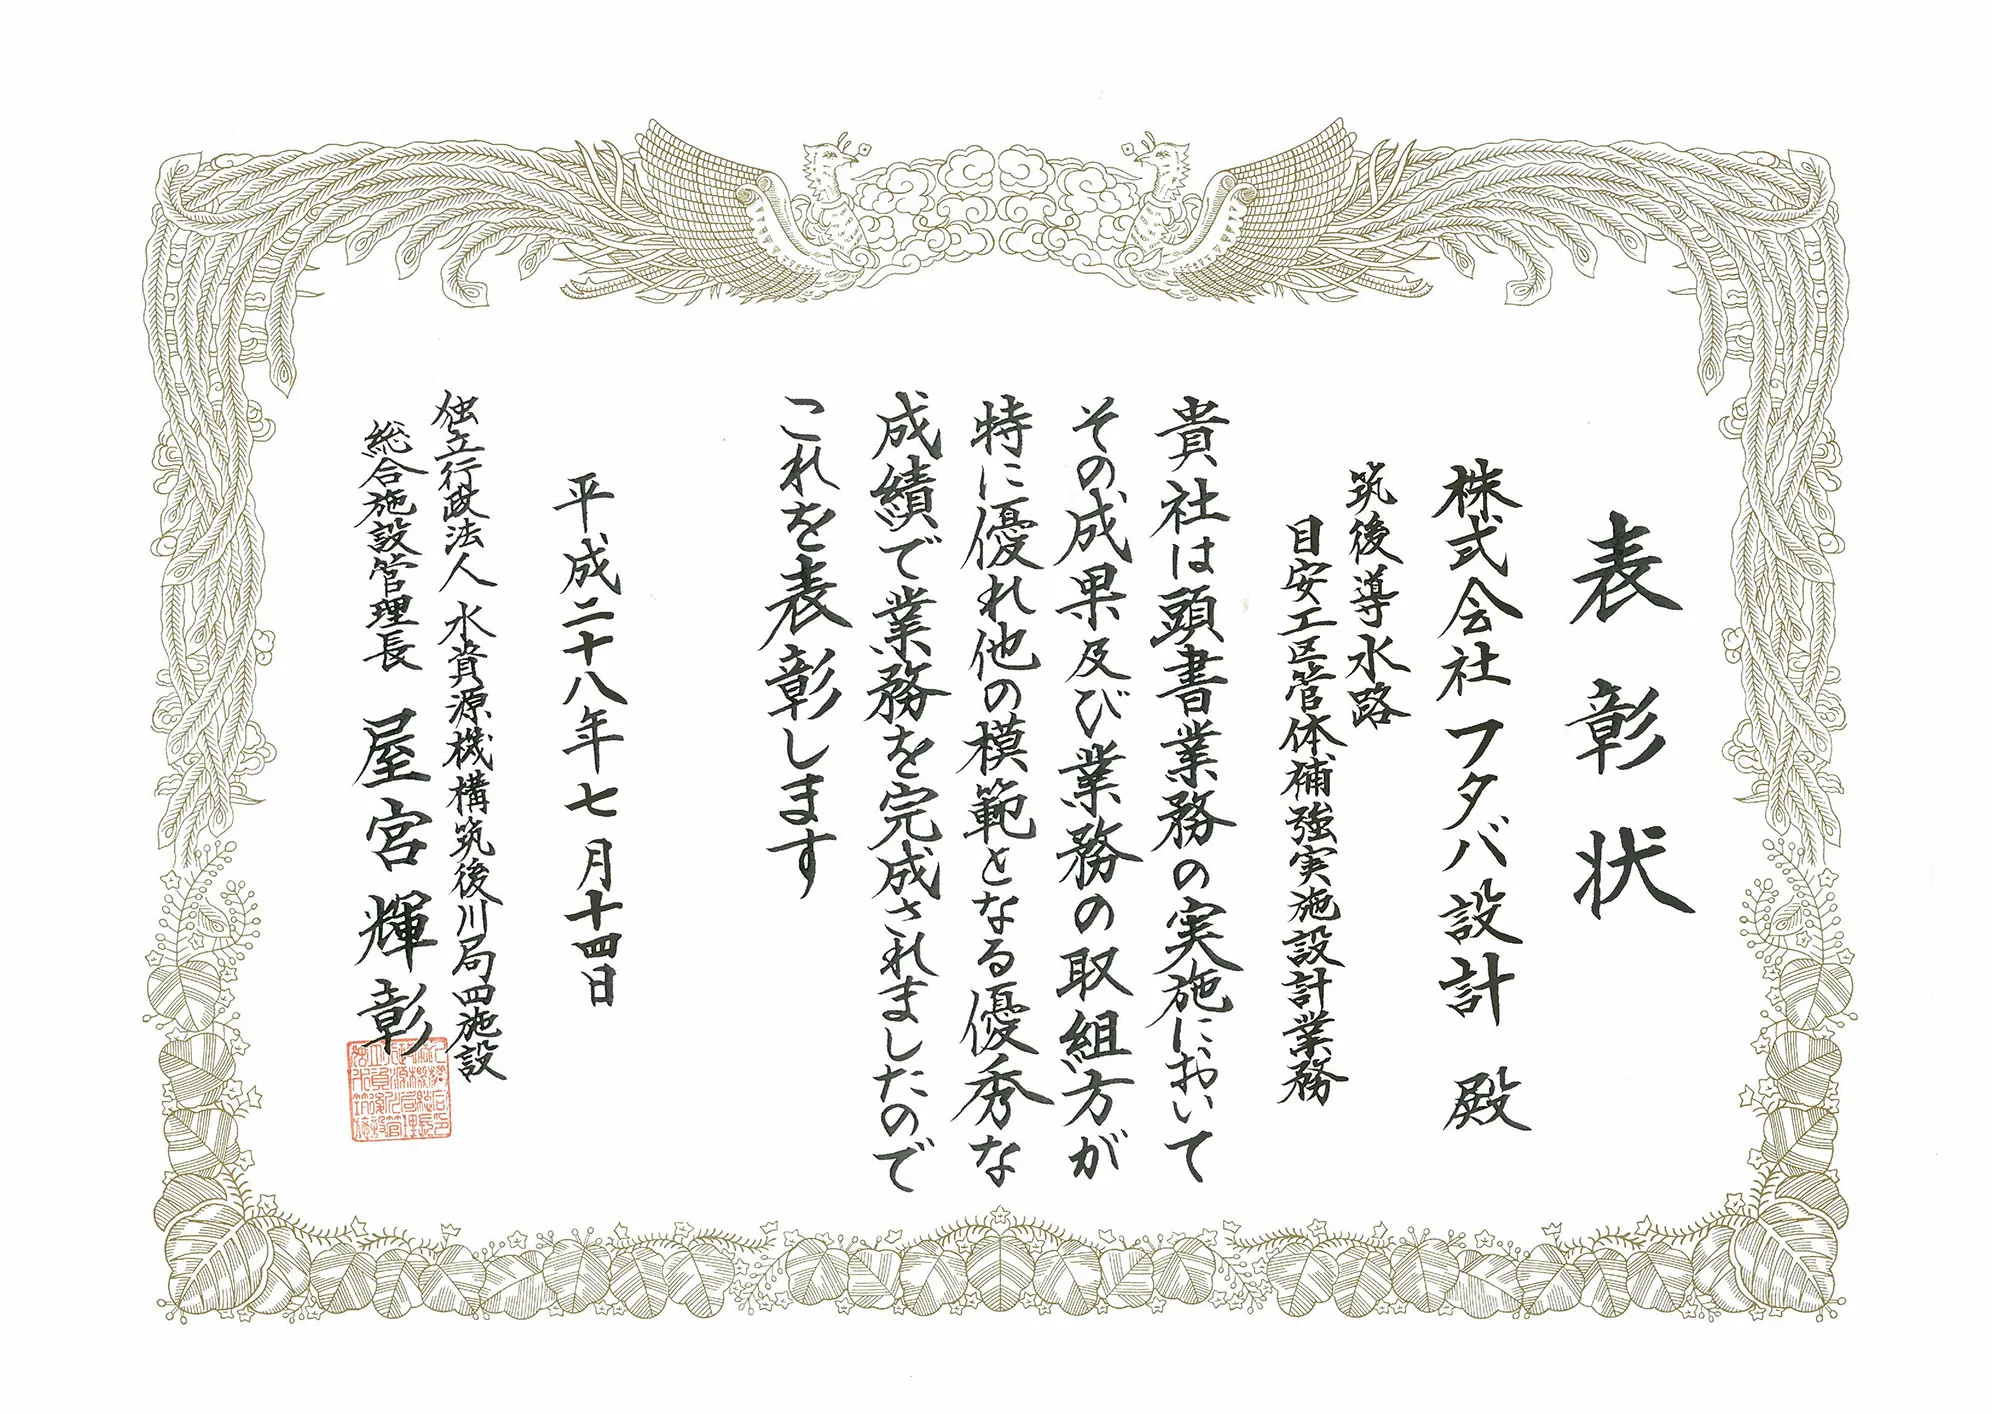 表彰状
株式会社フタバ設計 殿
筑後導水路
目安工区管体補強実施設計業務
貴社は頭書業務の実施において
その成果及び業務の取組方が
特に優れ他の模範となる優秀な
成績で業務を完成されましたので
これを表彰します
平成二十八年七月十四日
独立行政法人 水資源機構筑後川局四施設
総合施設管理長 屋宮輝彰